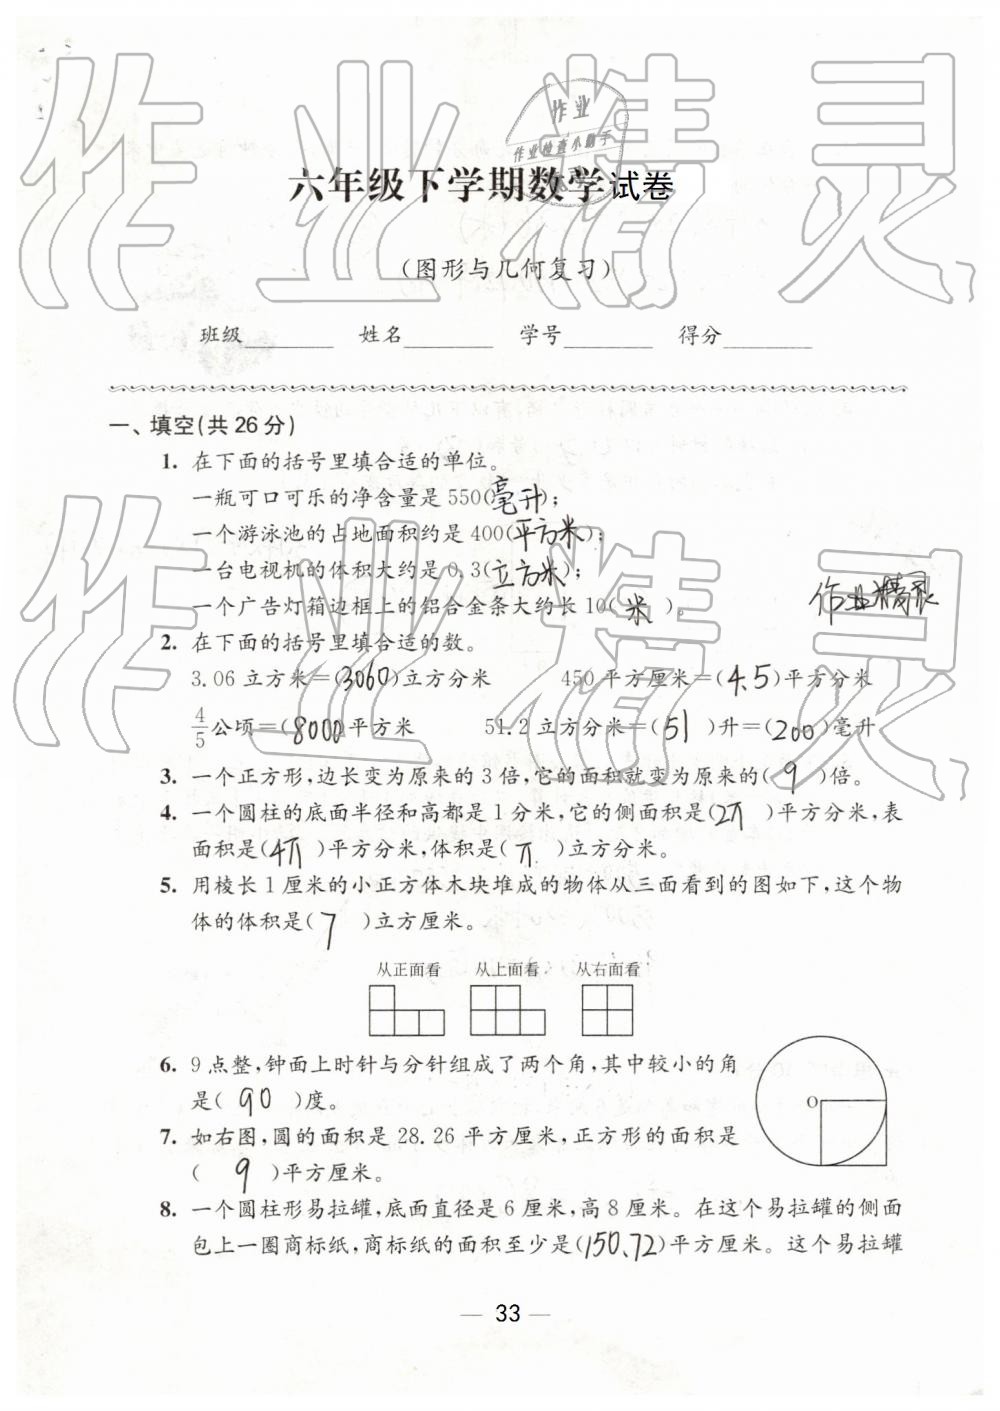 作业精灵
作业
作业检查小助手
六年级下学期数学试卷
(图形与几何复习)
班级 姓名 学号 得分
一、填空(共26分)
1. 在下面的括号里填合适的单位。
一瓶可口可乐的净含量是550(毫升);
一个游泳池的占地面积约是400(平方米);
一台电视机的体积大约是0.3(立方米);
一个广告灯箱边框上的铝合金条大约长10(米)。
作业精灵
作业精灵
2. 在下面的括号里填合适的数。
3.06立方米=(3060)立方分米 450平方厘米=(4.5)平方分米
4/5公顷=(8000)平方米 51.2立方分米=(51)升=(200)毫升
3. 一个正方形,边长变为原来的3倍,它的面积就变为原来的(9)倍。
4. 一个圆柱的底面半径和高都是1分米,它的侧面积是(2π)平方分米,表
面积是(4π)平方分米,体积是(π)立方分米。
5. 用棱长1厘米的小正方体木块堆成的物体从三面看到的图如下,这个物
体的体积是(7)立方厘米。
从正面看 从上面看 从右面看
6. 9点整,钟面上时针与分针组成了两个角,其中较小的角
是(90)度。
O
7. 如右图,圆的面积是28.26平方厘米,正方形的面积是
(9)平方厘米。
8. 一个圆柱形易拉罐,底面直径是6厘米,高8厘米。在这个易拉罐的侧面
包上一圈商标纸,商标纸的面积至少是(150.72)平方厘米。这个易拉罐
— 33 —